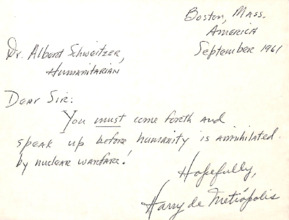 Boston, Mass.
America
September 1961
Dr. Albert Schweitzer,
Humanitarian
Dear Sir:
You must come forth and
speak up before humanity is annihilated
by nuclear warfare!
Hopefully,
Harry de Metropolis